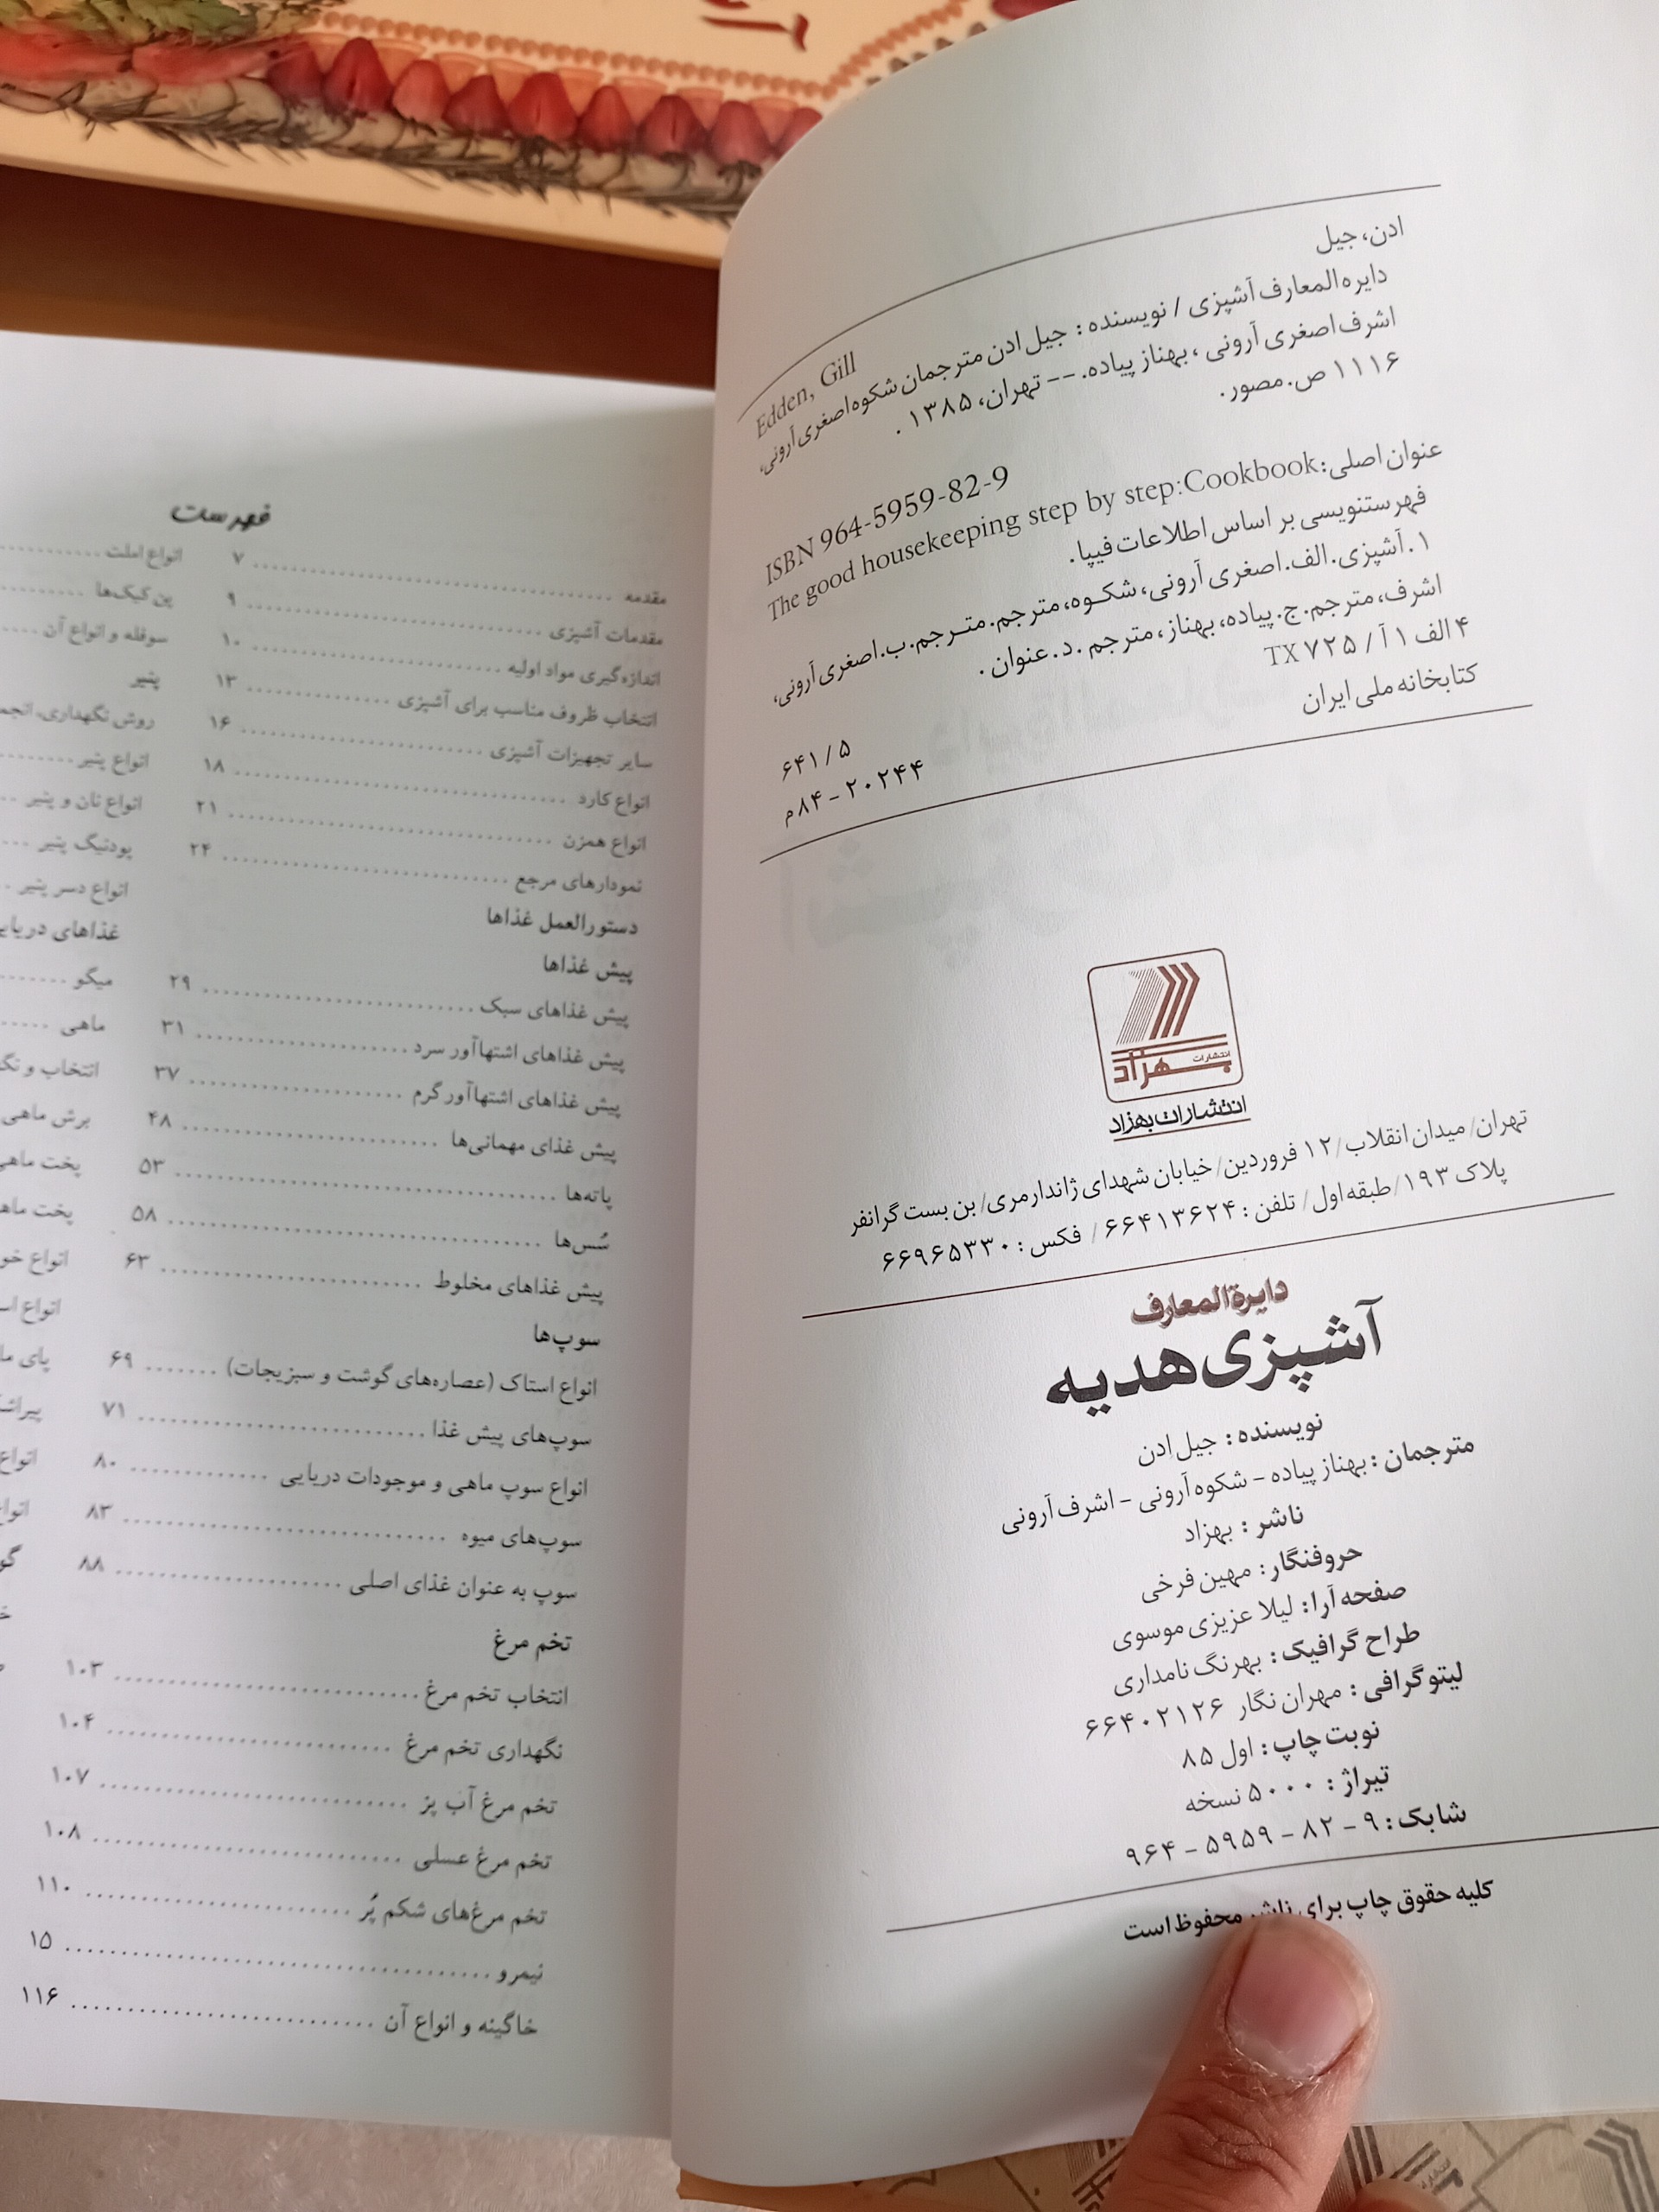 ادن، جیل
Edden, Gill
دایره‌المعارف آشپزی / نویسنده : جیل ادن مترجمان شکوه اصغری آرونی،
اشرف اصغری آرونی ، بهناز پیاده. -- تهران، ۱۳۸۵ .
۱۱۱۶ ص. مصور.
ISBN 964-5959-82-9
عنوان اصلی: The good housekeeping step by step:Cookbook
فهرستنویسی بر اساس اطلاعات فیپا.
۱. آشپزی. الف. اصغری آرونی، شکوه، مترجم. مترجم. ب. اصغری آرونی،
اشرف، مترجم. ج. پیاده، بهناز، مترجم . د. عنوان .
۴ الف ۱ آ / ۷۲۵ TX
کتابخانه ملی ایران
۶۴۱/۵
م۸۴-۲۰۲۴۴
انتشارات
بهزاد
انتشارات بهزاد
تهران/ میدان انقلاب/ ۱۲ فروردین/ خیابان شهدای ژاندارمری/ بن بست گرانفر
پلاک ۱۹۳/ طبقه اول/ تلفن : ۶۶۴۱۳۶۲۴ / فکس : ۶۶۹۶۵۳۳۰
دایرة‌المعارف
آشپزی هدیه
نویسنده : جیل اِدن
مترجمان : بهناز پیاده - شکوه آرونی - اشرف آرونی
ناشر : بهزاد
حروفنگار : مهین فرخی
صفحه آرا: لیلا عزیزی موسوی
طراح گرافیک : بهرنگ نامداری
لیتوگرافی : مهران نگار ۶۶۴۰۲۱۲۶
نوبت چاپ : اول ۸۵
تیراژ : ۵۰۰۰ نسخه
شابک : ۹ - ۸۲ - ۵۹۵۹ - ۹۶۴
کلیه حقوق چاپ برای ناشر محفوظ است
فهرست
مقدمه ........ ۷
مقدمات آشپزی ........ ۹
اندازه‌گیری مواد اولیه ........ ۱۰
انتخاب ظروف مناسب برای آشپزی ........ ۱۳
سایر تجهیزات آشپزی ........ ۱۶
انواع کارد ........ ۱۸
انواع همزن ........ ۲۱
نمودارهای مرجع ........ ۲۴
دستورالعمل غذاها
پیش غذاها
پیش غذاهای سبک ........ ۲۹
پیش غذاهای اشتهاآور سرد ........ ۳۱
پیش غذاهای اشتهاآور گرم ........ ۳۷
پیش غذای مهمانی‌ها ........ ۴۸
پاته‌ها ........ ۵۳
سُس‌ها ........ ۵۸
پیش غذاهای مخلوط ........ ۶۳
سوپ‌ها
انواع استاک (عصاره‌های گوشت و سبزیجات) ........ ۶۹
سوپ‌های پیش غذا ........ ۷۱
انواع سوپ ماهی و موجودات دریایی ........ ۸۰
سوپ‌های میوه ........ ۸۳
سوپ به عنوان غذای اصلی ........ ۸۸
تخم مرغ
انتخاب تخم مرغ ........ ۱۰۳
نگهداری تخم مرغ ........ ۱۰۴
تخم مرغ آب پز ........ ۱۰۷
تخم مرغ عسلی ........ ۱۰۸
تخم مرغ‌های شکم پُر ........ ۱۱۰
نیمرو ........ ۱۵
خاگینه و انواع آن ........ ۱۱۶
انواع املت ........
پن کیک‌ها ........
سوفله و انواع آن ........
پنیر
روش نگهداری،
انواع پنیر ........
انواع نان و پنیر ........
پودینگ پنیر ........
انواع دسر پنیر ........
غذاهای
میگو ........
ماهی ........
انتخاب و
برش ماهی
پخت
پخت
انواع
انواع
پای
انواع
انواع